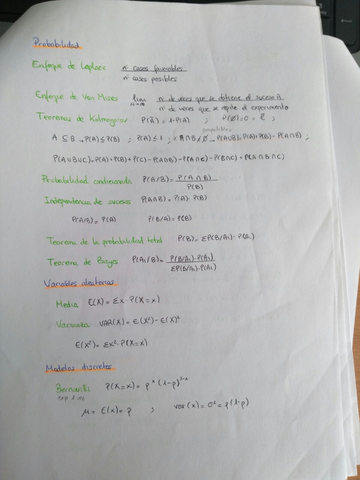 Probabilidad
Enfoque de Laplace nº casos favorables
nº casos posibles
Enfoque de Von Mises lim n→∞ nº de veces que se obtiene el suceso A
nº de veces que se repite el experimento
Teoremas de Kolmogorov P(Ā) = 1-P(A) ; P(∅) = 0 ;
A ⊆ B → P(A) ≤ P(B) ; P(A) ≤ 1 ; A∩B ≠ ∅ → P(A∪B) = P(A)+P(B)-P(A∩B) ;
P(A∪B∪C) = P(A)+P(B)+P(C)-P(A∩B)-P(A∩C)-P(B∩C)+P(A∩B∩C)
Probabilidad condicionada P(A/B) = P(A∩B)
P(B)
Independencia de sucesos P(A∩B) = P(A)·P(B)
P(A/B) = P(A) P(B/A) = P(B)
Teorema de la probabilidad total P(B) = ΣP(B/Ai)·P(Ai)
Teorema de Bayes P(Ai/B) = P(B/Ai)·P(Ai)
ΣP(B/Ai)·P(Ai)
Variables aleatorias
Media E(X) = Σx·P(X=x)
Varianza VAR(X) = E(X²)-E(X)²
E(X²) = Σx²·P(X=x)
Modelos discretos
Bernoulli P(X=x) = p^x (1-p)^1-x
μ = E(x) = p ; var(x) = σ² = p(1-p)